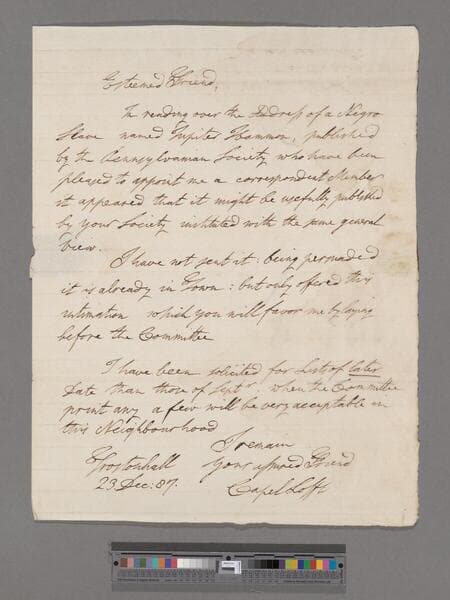 Esteemed Friend,
In reading over the Address of a Negro
Slave named Jupiter Hammon, published
by the Pennsylvanian Society, who have been
pleased to appoint me a correspondent Member
it appeared that it might be usefully published
by your Society instituted with the same general
View.
I have not sent it: being persuaded
it is already in Town: but only offered this
intimation which you will favor me by laying
before the Committee
I have been solicited for Lists of later
Date than those of Septr: when the Committee
print any a few will be very acceptable in
this Neighbourhood
I remain
Troston hall your assured Friend
23 Dec: 87. Capel Lofft